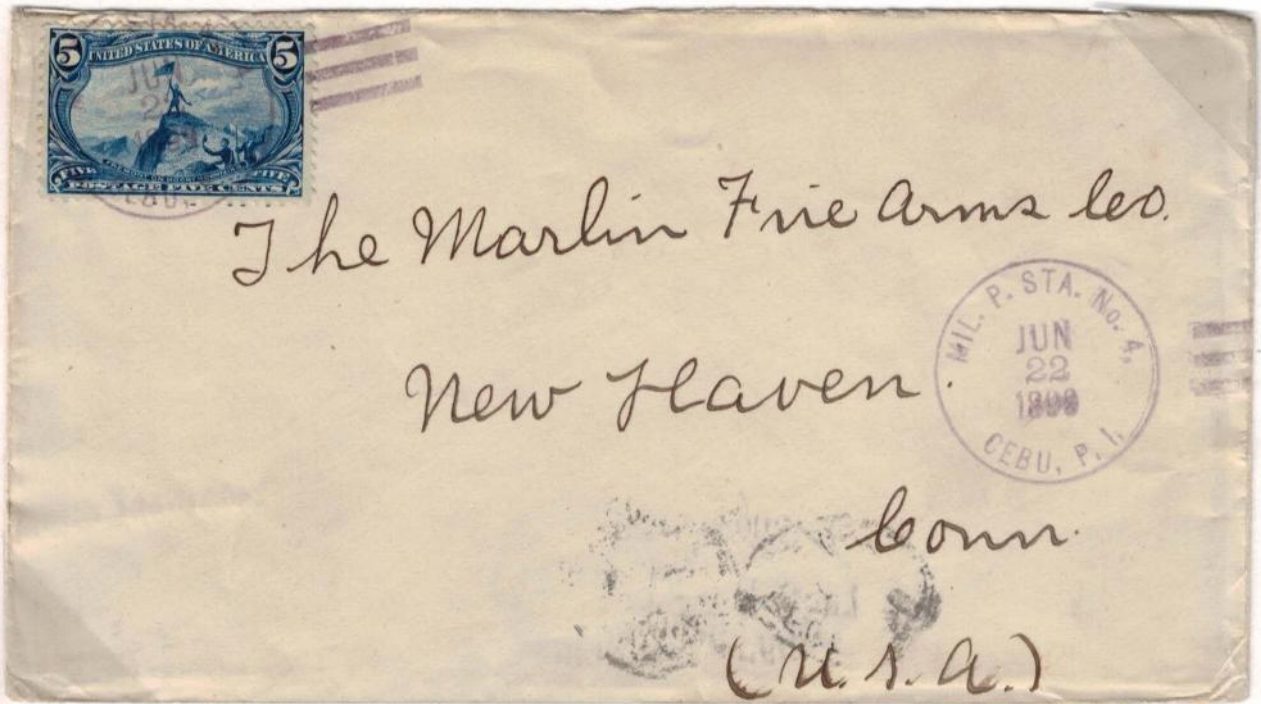 5 UNITED STATES OF AMERICA 5
JUN
22
1899
FIVE FIVE
POSTAGE FIVE CENTS
The Marlin Fire Arms Co.
New Haven.
Conn.
(U.S.A.)
MIL. P. STA. No. 4,
JUN
22
1899
CEBU, P. I.